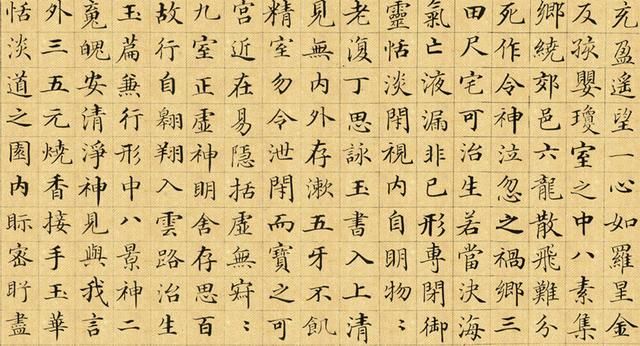 充盈遥望一心如羅星金
反孩嬰瓊室之中八素集
鄉繞郊邑六龍散飛難分
死作令神泣忽之禍鄉三
田尺宅可治生若當決海
氣亡液漏非已形專閉御
靈恬淡閑視内自明物〻
老復丁思詠玉書入上清
見無内外存漱五牙不飢
精室勿令泄閇而寶之可
宮近在易隱括虛無寂〻
九室正虛神明舍存思百
故行自翱翔入雲路治生
玉篇兼行形中八景神二
魂魄安清淨神見與我言
外三五元燒香接手玉華
恬淡道之園内眎密盱盡